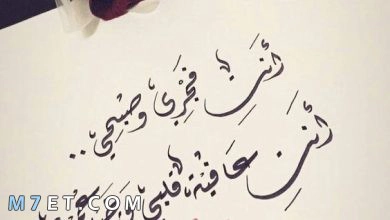 أنتِ فجري وصبحي ..
أنتِ عافية قلبي
M7ET.COM